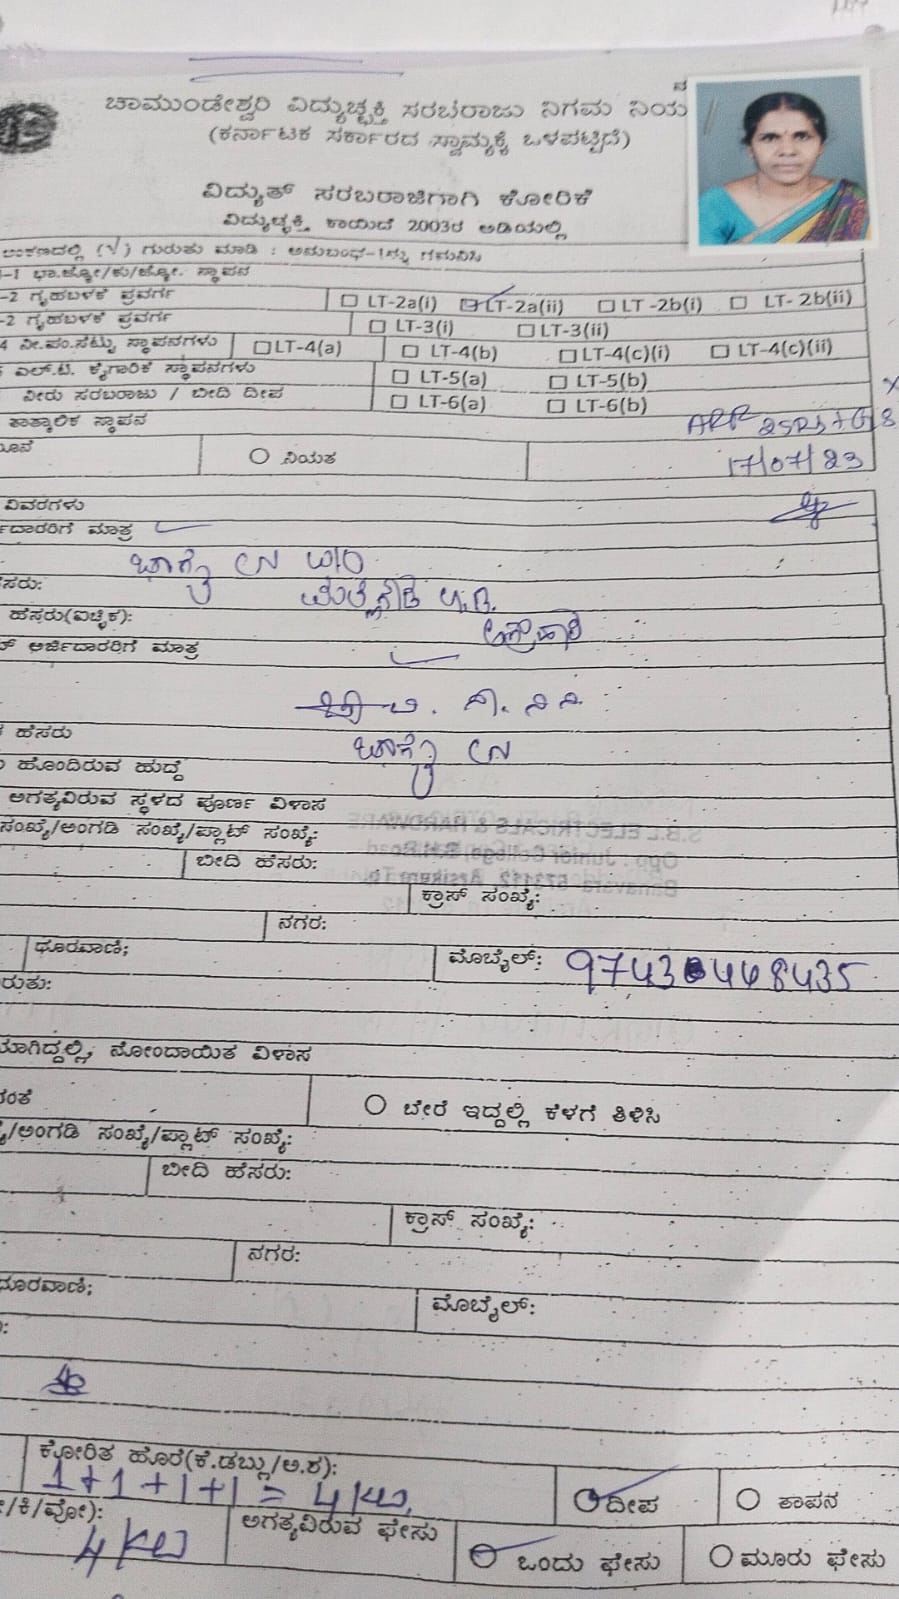 ಚಾಮುಂಡೇಶ್ವರಿ ವಿದ್ಯುಚ್ಛಕ್ತಿ ಸರಬರಾಜು ನಿಗಮ ನಿಯ
(ಕರ್ನಾಟಕ ಸರ್ಕಾರದ ಸ್ವಾಮ್ಯಕ್ಕೆ ಒಳಪಟ್ಟಿದೆ)
ವಿದ್ಯುತ್ ಸರಬರಾಜಿಗಾಗಿ ಕೋರಿಕೆ
ವಿದ್ಯುಚ್ಛಕ್ತಿ ಕಾಯಿದೆ 2003ರ ಅಡಿಯಲ್ಲಿ
ಅಂಕಣದಲ್ಲಿ (√) ಗುರುತು ಮಾಡಿ : ಅನುಬಂಧ-1ನ್ನು ಗಮನಿಸಿ
-1 ಭಾ.ಜ್ಯೋ/ಕು/ಜ್ಯೋ. ಸ್ಥಾಪನ
-2 ಗೃಹಬಳಕೆ ಪ್ರವರ್ಗ LT-2a(i) LT-2a(ii) LT-2b(i) LT-2b(ii)
-2 ಗೃಹಬಳಕೆ ಪ್ರವರ್ಗ LT-3(i) LT-3(ii)
4 ನೀ.ಪಂ.ಸೆಟ್ಟು ಸ್ಥಾಪನಗಳು LT-4(a) LT-4(b) LT-4(c)(i) LT-4(c)(ii)
ಎಲ್.ಟಿ. ಕೈಗಾರಿಕೆ ಸ್ಥಾಪನಗಳು LT-5(a) LT-5(b)
ನೀರು ಸರಬರಾಜು / ಬೀದಿ ದೀಪ LT-6(a) LT-6(b)
ತಾತ್ಕಾಲಿಕ ಸ್ಥಾಪನ
ನಿಯತ 17/07/23
ವಿವರಗಳು
ರ್ಜಿದಾರರಿಗೆ ಮಾತ್ರ
ಭಾಗ್ಯ W/O
ಸರು:
ಹೆಸರು(ಐಚ್ಛಿಕ):
ಅರ್ಜಿದಾರರಿಗೆ ಮಾತ್ರ
ಹೆಸರು
ಭಾಗ್ಯ
ಹೊಂದಿರುವ ಹುದ್ದೆ
ಅಗತ್ಯವಿರುವ ಸ್ಥಳದ ಪೂರ್ಣ ವಿಳಾಸ
ಸಂಖ್ಯೆ/ಅಂಗಡಿ ಸಂಖ್ಯೆ/ಪ್ಲಾಟ್ ಸಂಖ್ಯೆ:
ಬೀದಿ ಹೆಸರು:
ಕ್ರಾಸ್ ಸಂಖ್ಯೆ:
ನಗರ:
ಧೂರವಾಣಿ; ಮೊಬೈಲ್: 9743
ರುತು:
ಯಾಗಿದ್ದಲ್ಲಿ, ನೋಂದಾಯಿತ ವಿಳಾಸ
ರಂತೆ ಬೇರೆ ಇದ್ದಲ್ಲಿ ಕೆಳಗೆ ತಿಳಿಸಿ
/ಅಂಗಡಿ ಸಂಖ್ಯೆ/ಪ್ಲಾಟ್ ಸಂಖ್ಯೆ:
ಬೀದಿ ಹೆಸರು:
ಕ್ರಾಸ್ ಸಂಖ್ಯೆ:
ನಗರ:
ಧೂರವಾಣಿ; ಮೊಬೈಲ್:
ಕೋರಿತ ಹೊರೆ(ಕೆ.ಡಬ್ಲ್ಯು/ಅ.ಶ):
1+1+1+1 = 4 KW ದೀಪ ತಾಪನ
/ಕಿ/ವೋ): 4 KW ಅಗತ್ಯವಿರುವ ಫೇಸು ಒಂದು ಫೇಸು ಮೂರು ಫೇಸು